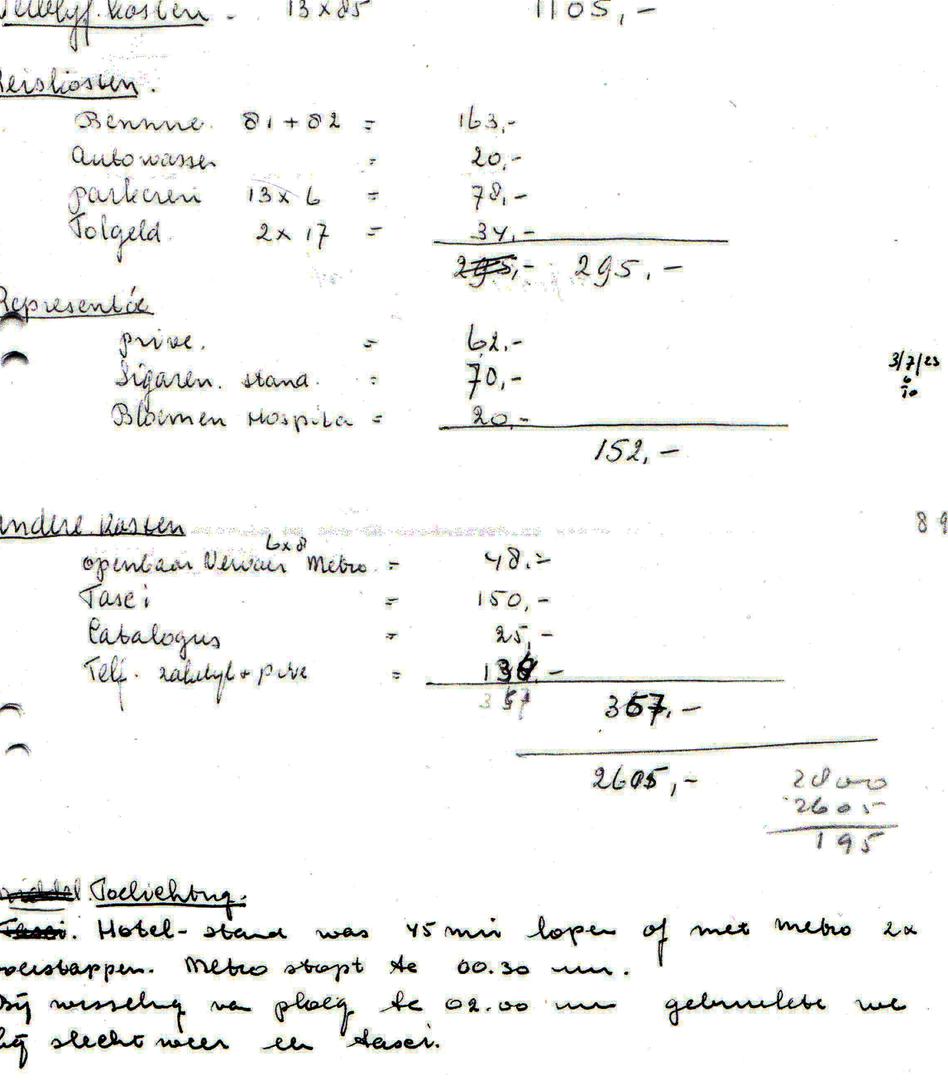 Verblyf. kosten. 13 x 85 1105,-
Reiskosten.
Benzine. 81 + 82 = 163,-
Autowassen = 20,-
parkeren 13 x 6 = 78,-
Tolgeld. 2 x 17 = 34,-
295,- 295,-
Representie
prive. = 62,-
Sigaren. stand. = 70,-
Bloemen Hospita = 20,-
152,-
3/7/23
6
10
andere kosten
89
6x8
openbaar Vervoer Metro. = 48,=
Taxi = 150,-
Catalogus = 25,-
Telf. + prive = ,-
357 357,-
2605,- 2800
2605
195
Toelichting.
Hotel- stand was 45 min lopen of met metro 2x
overstappen. Metro stopt te 00.30 uur.
Bij wisseling van ploeg te 02.00 uur gebruikte we
bij slecht weer een taxi.